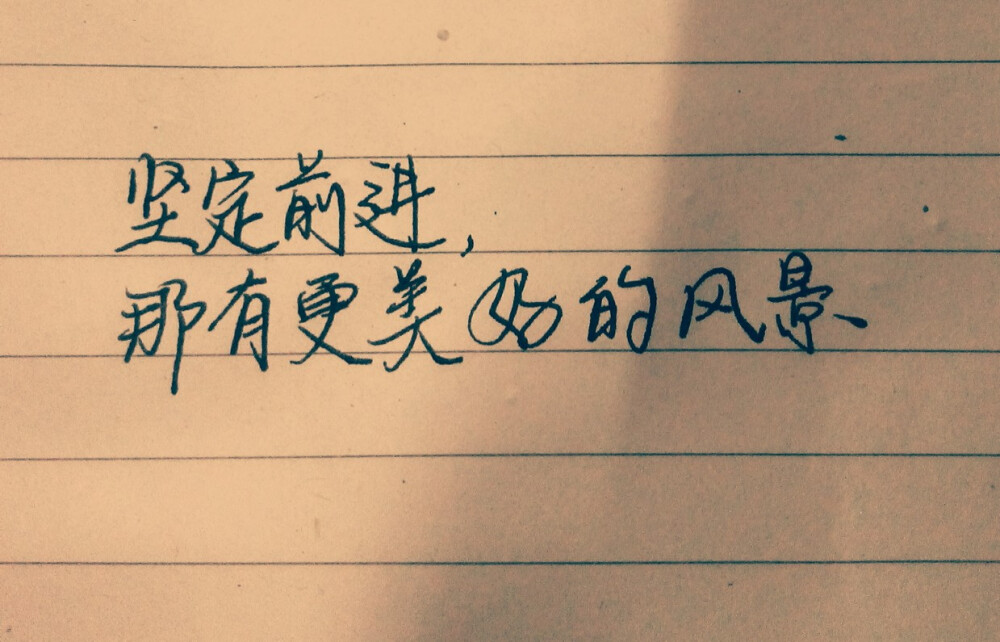 坚定前进,
那有更美好的风景、